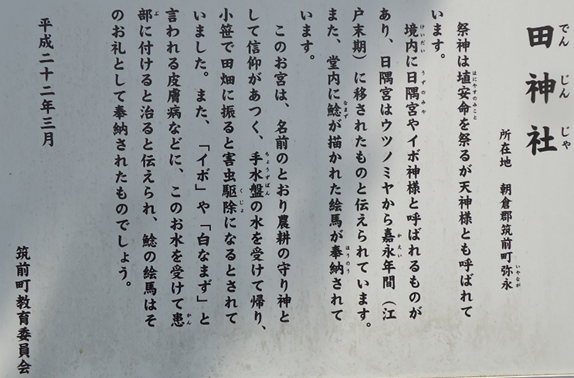 田神社
所在地 朝倉郡筑前町弥永
祭神は埴安命を祭るが天神様とも呼ばれて
います。
境内に日隅宮やイボ神様と呼ばれるものが
あり、日隅宮はウツノミヤから嘉永年間（江
戸末期）に移されたものと伝えられています。
また、堂内に鯰が描かれた絵馬が奉納されて
います。
このお宮は、名前のとおり農耕の守り神と
して信仰があつく、手水盤の水を受けて帰り、
小笹で田畑に振ると害虫駆除になるとされて
いました。また、「イボ」や「白なまず」と
言われる皮膚病などに、このお水を受けて患
部に付けると治ると伝えられ、鯰の絵馬はそ
のお礼として奉納されたものでしょう。
平成二十二年三月
筑前町教育委員会